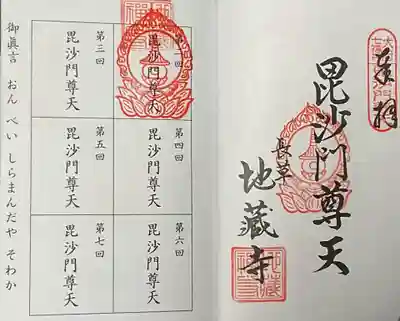 奉拝
毘沙門尊天
長草
地藏寺
第二回
毘沙門尊天
第三回
毘沙門尊天
第四回
毘沙門尊天
第五回
毘沙門尊天
第六回
毘沙門尊天
第七回
毘沙門尊天
御眞言 おん べい しらまんだや そわか